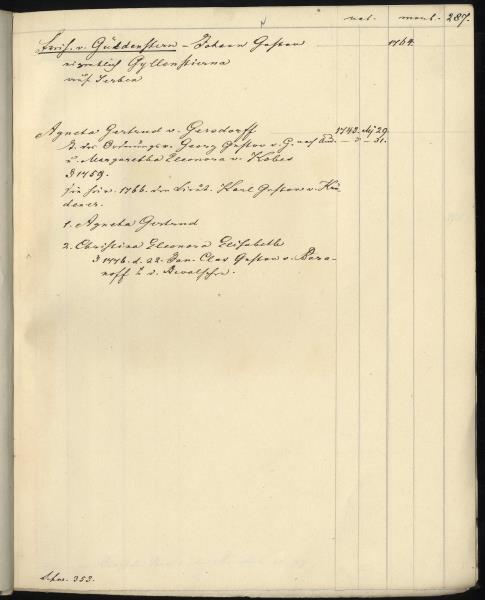 nat. mort. 287.
Freih. v. Güldenstern - Johann Gustav 1764.
eigentlich Gyllenstierna
auf Serben
Agneta Gertrud v. Gersdorff 1743. Mj 29.
T. des Ordnungsr. Georg Gustav v. G. nach And. — " — 31.
u. Margaretha Eleonora v. Kobes
1759.
sie heir. 1766. den Lieut. Karl Gustav v. Krü
dener.
1. Agneta Gertrud
2. Christina Eleonora Elisabeth
1776. d. 22. Jan. Clas Gustav v. Bara-
noff
353.